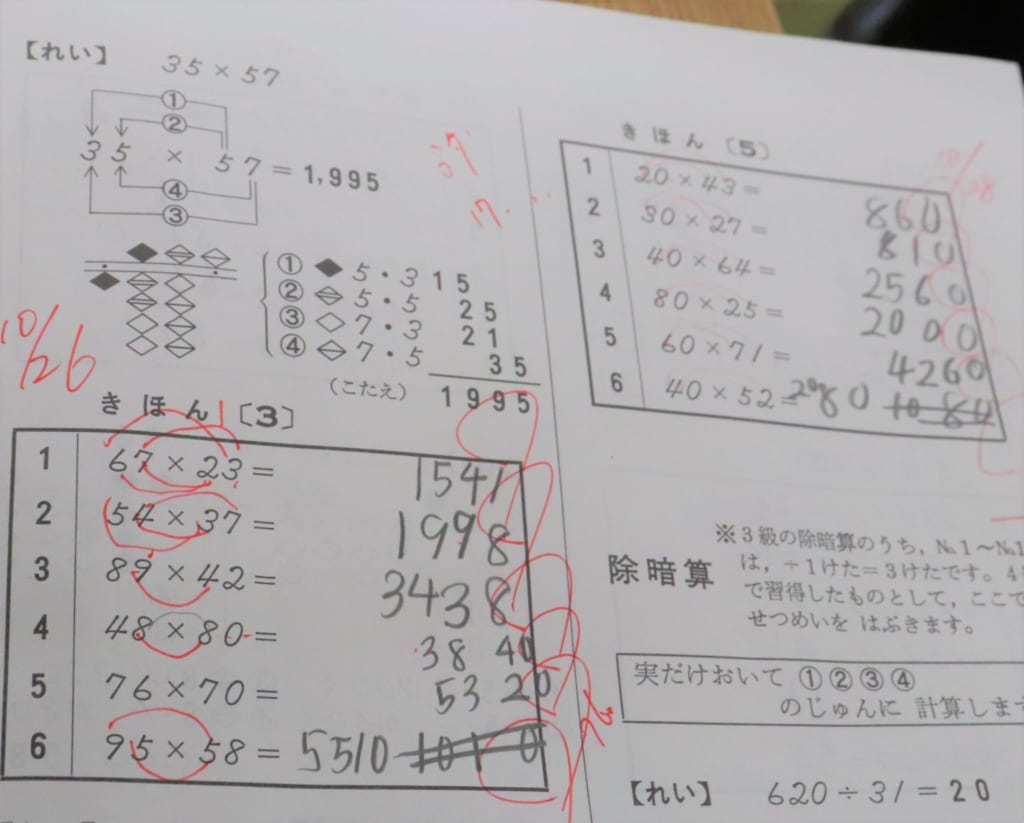 【れい】 35×57
①
②
35 × 57 = 1,995
④
③
① 5・3 15
② 5・5 25
③ 7・3 21
④ 7・5 35
(こたえ) 1995
10/26
きほん〔3〕
1 67×23= 1541
2 54×37= 1998
3 89×42= 3438
4 48×80= 3840
5 76×70= 5320
6 95×58= 5510 1010
57
17
きほん〔5〕
1 20×43= 860
2 30×27= 810
3 40×64= 2560
4 80×25= 2000
5 60×71= 4260
6 40×52= 2080 1084
除暗算
※3級の除暗算のうち，No.1～No.1
は，÷1けた=3けたです。4
で習得したものとして，ここで
せつめいを はぶきます。
実だけおいて ①②③④
のじゅんに 計算しま
【れい】 620÷31=20